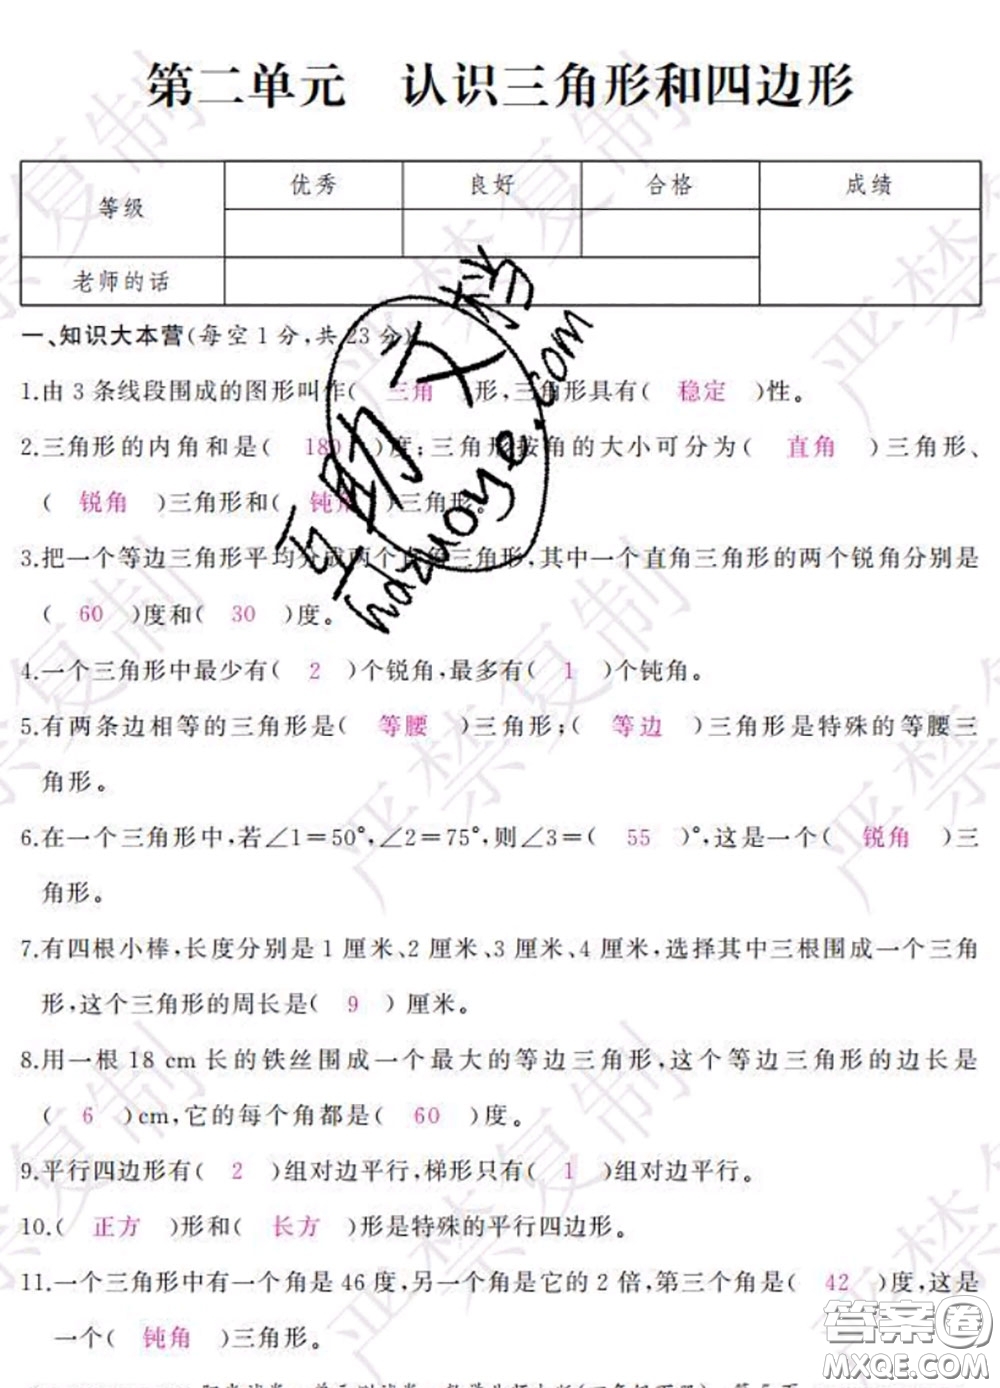 第二单元 认识三角形和四边形
等级 优秀 良好 合格 成绩
老师的话
一、知识大本营(每空1分,共23分)
1.由3条线段围成的图形叫作( 三角 )形,三角形具有( 稳定 )性。
2.三角形的内角和是( 180 )度;三角形按角的大小可分为( 直角 )三角形、
( 锐角 )三角形和( 钝角 )三角形。
3.把一个等边三角形平均分成两个直角三角形,其中一个直角三角形的两个锐角分别是
( 60 )度和( 30 )度。
4.一个三角形中最少有( 2 )个锐角,最多有( 1 )个钝角。
5.有两条边相等的三角形是( 等腰 )三角形;( 等边 )三角形是特殊的等腰三
角形。
6.在一个三角形中,若∠1=50°,∠2=75°,则∠3=( 55 )°,这是一个( 锐角 )三
角形。
7.有四根小棒,长度分别是1厘米、2厘米、3厘米、4厘米,选择其中三根围成一个三角
形,这个三角形的周长是( 9 )厘米。
8.用一根18 cm长的铁丝围成一个最大的等边三角形,这个等边三角形的边长是
( 6 )cm,它的每个角都是( 60 )度。
9.平行四边形有( 2 )组对边平行,梯形只有( 1 )组对边平行。
10.( 正方 )形和( 长方 )形是特殊的平行四边形。
11.一个三角形中有一个角是46度,另一个角是它的2倍,第三个角是( 42 )度,这是
一个( 钝角 )三角形。
严禁复制
答案圈
MXQE.COM